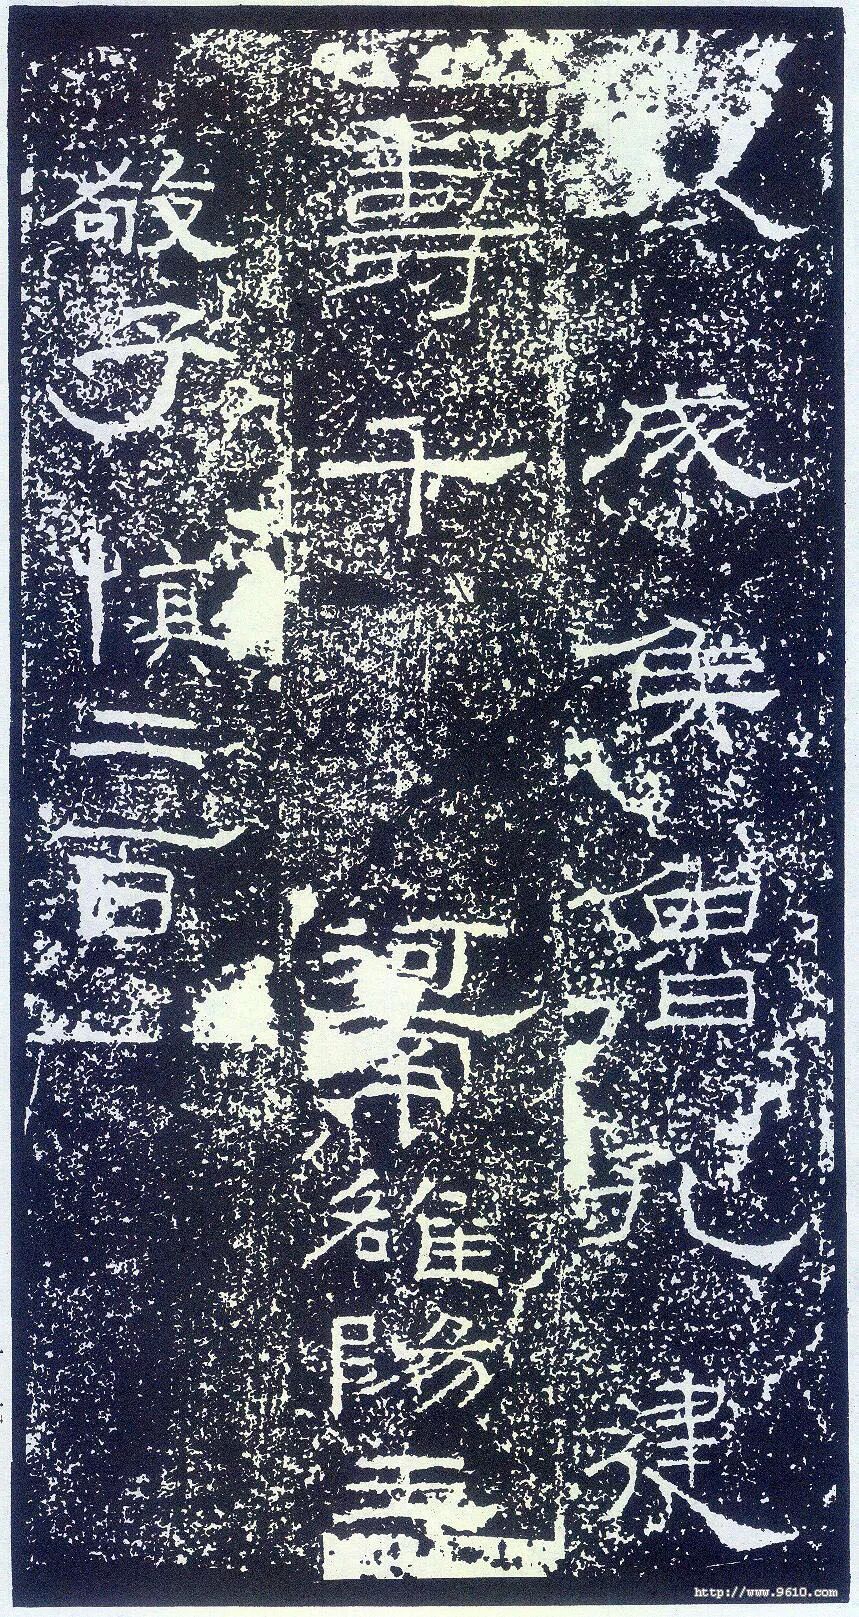 成侯魯孔建
壽千 河南雒陽王
敬子慎二百
http://www.9610.com